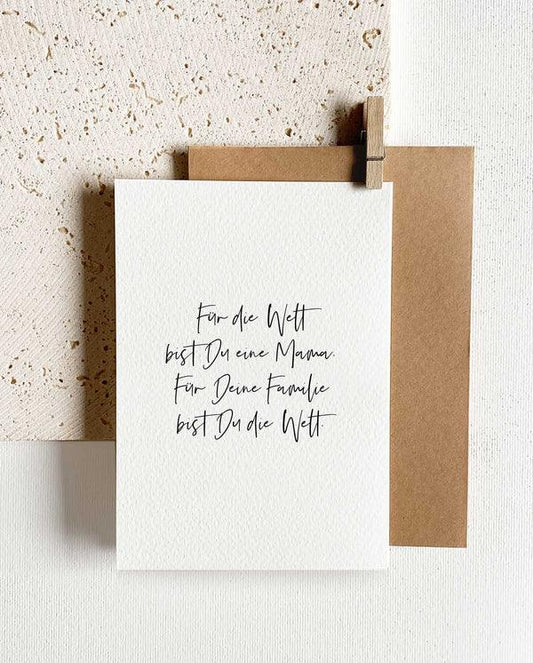 Für die Welt
bist Du eine Mama.
Für Deine Familie
bist Du die Welt.